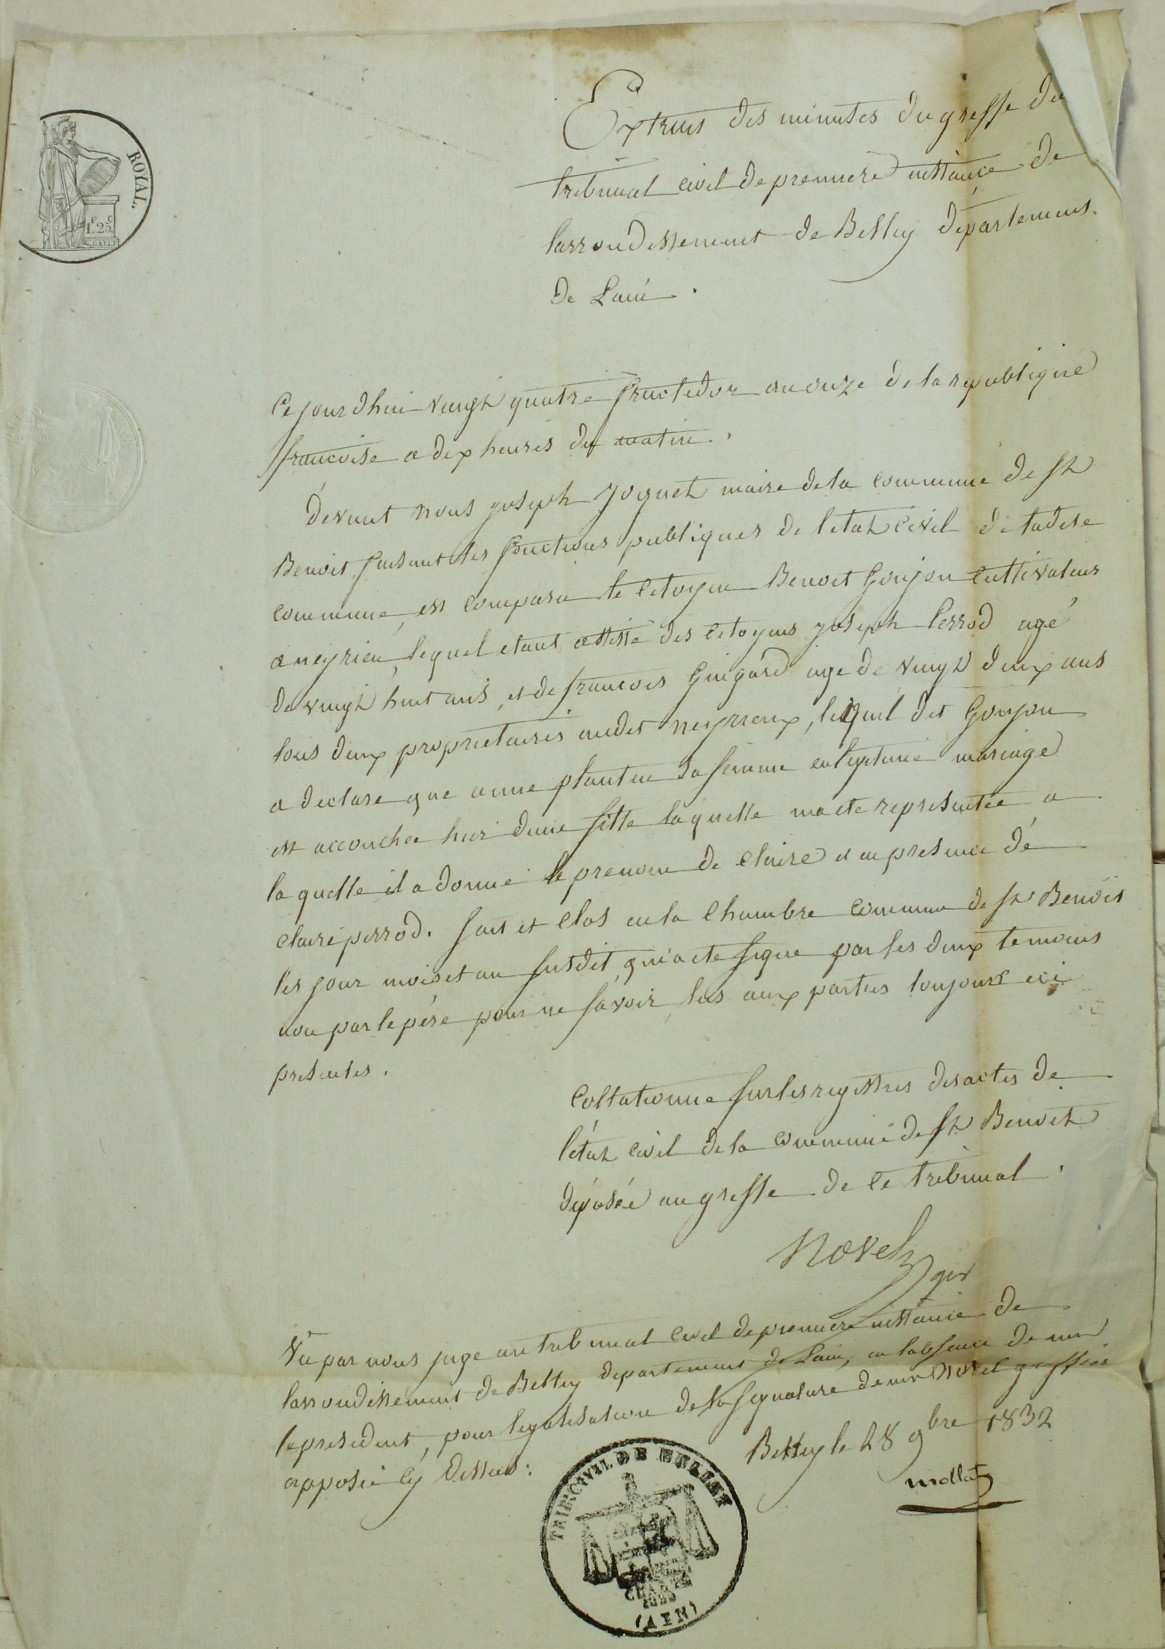 ROYAL.
1F 25C
Extrais des minutes du greffe du
tribunal civil de premiere instance de
larrondissement de Belley département
de Lain.
Cejourdhui vingt quatre fructidor an onze de la republique
francoise a dix heures du matin.
Devant nous joseph Joguet maire de la commune de St
Benoit faisant les fonctions publiques de letat civil de ladite
commune, est comparu le citoyen Benoit Goujon cultivateur
a neyrieu, lequel etant assisté des citoyens joseph perrod agé
de vingt huit ans, et de francois Guigard age de vingt deux ans
tous deux proprietaires audit neyrieux, lequel dit Goujon
a declare que anne plantin sa femme en legitime mariage
est accouchee hier dune fille laquelle ma ete representée a
la quelle il a donné le prenom de Claire et en presence de
claire perrod. fait et clos en la Chambre commune de St Benoit
les jour mois et an susdit, qui a ete signe par les deux temoins
non par le père pour ne savoir, lus aux parties toujours
presentes.
Collationne sur les registres des actes de
l'état civil de la commune de St Benoit
déposée au greffe de ce tribunal.
Novel
ger
Vu par nous juge au tribunal civil de premiere instance de
larrondissement de Belley departement de Lain, en labsence de mr
le president, pour legalisation de la signature de mr Novel greffier
apposée cy dessus:
Belley le 28 9bre 1832
mollat
TRIB. CIVIL DE BELLEY
(AIN)